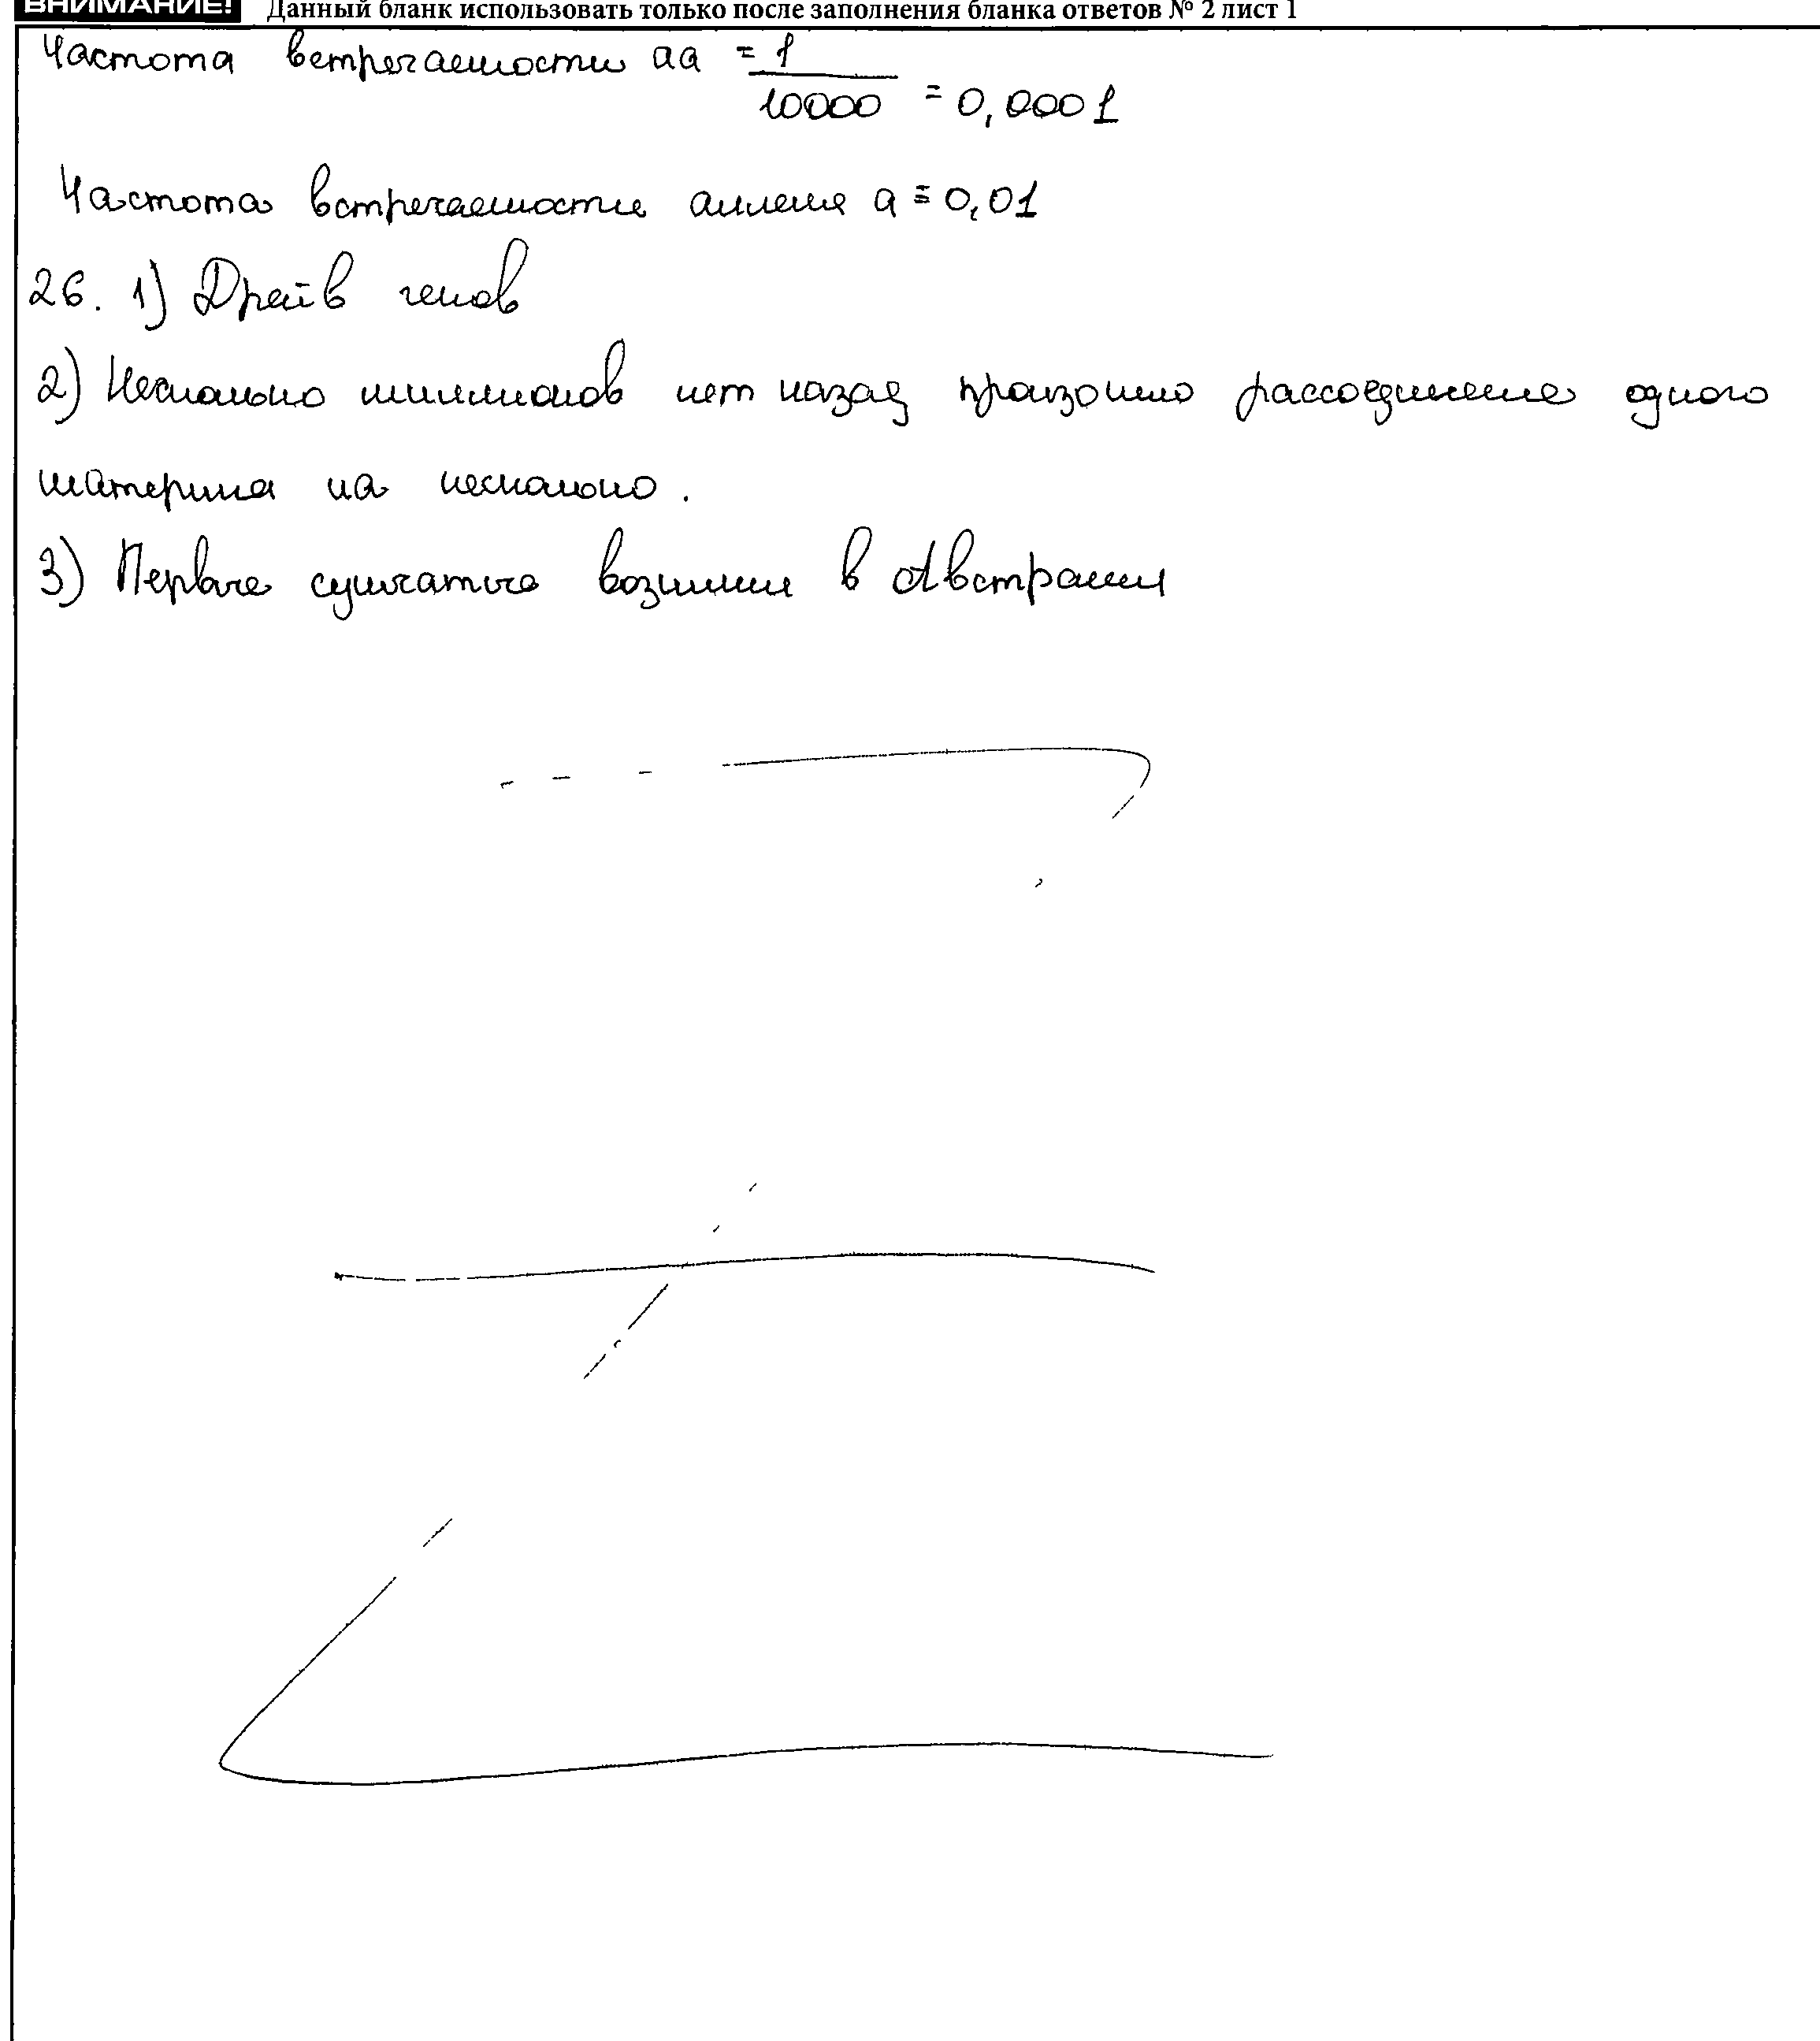 ВНИМАНИЕ! Данный бланк использовать только после заполнения бланка ответов № 2 лист 1
Частота встречаемости аа = 1
10000 = 0,0001
Частота встречаемости аллеля а = 0,01
26. 1) Драйв генов
2) Несколько миллионов лет назад произошло рассоединение одного
материка на несколько.
3) Первые сумчатые возникли в Австралии